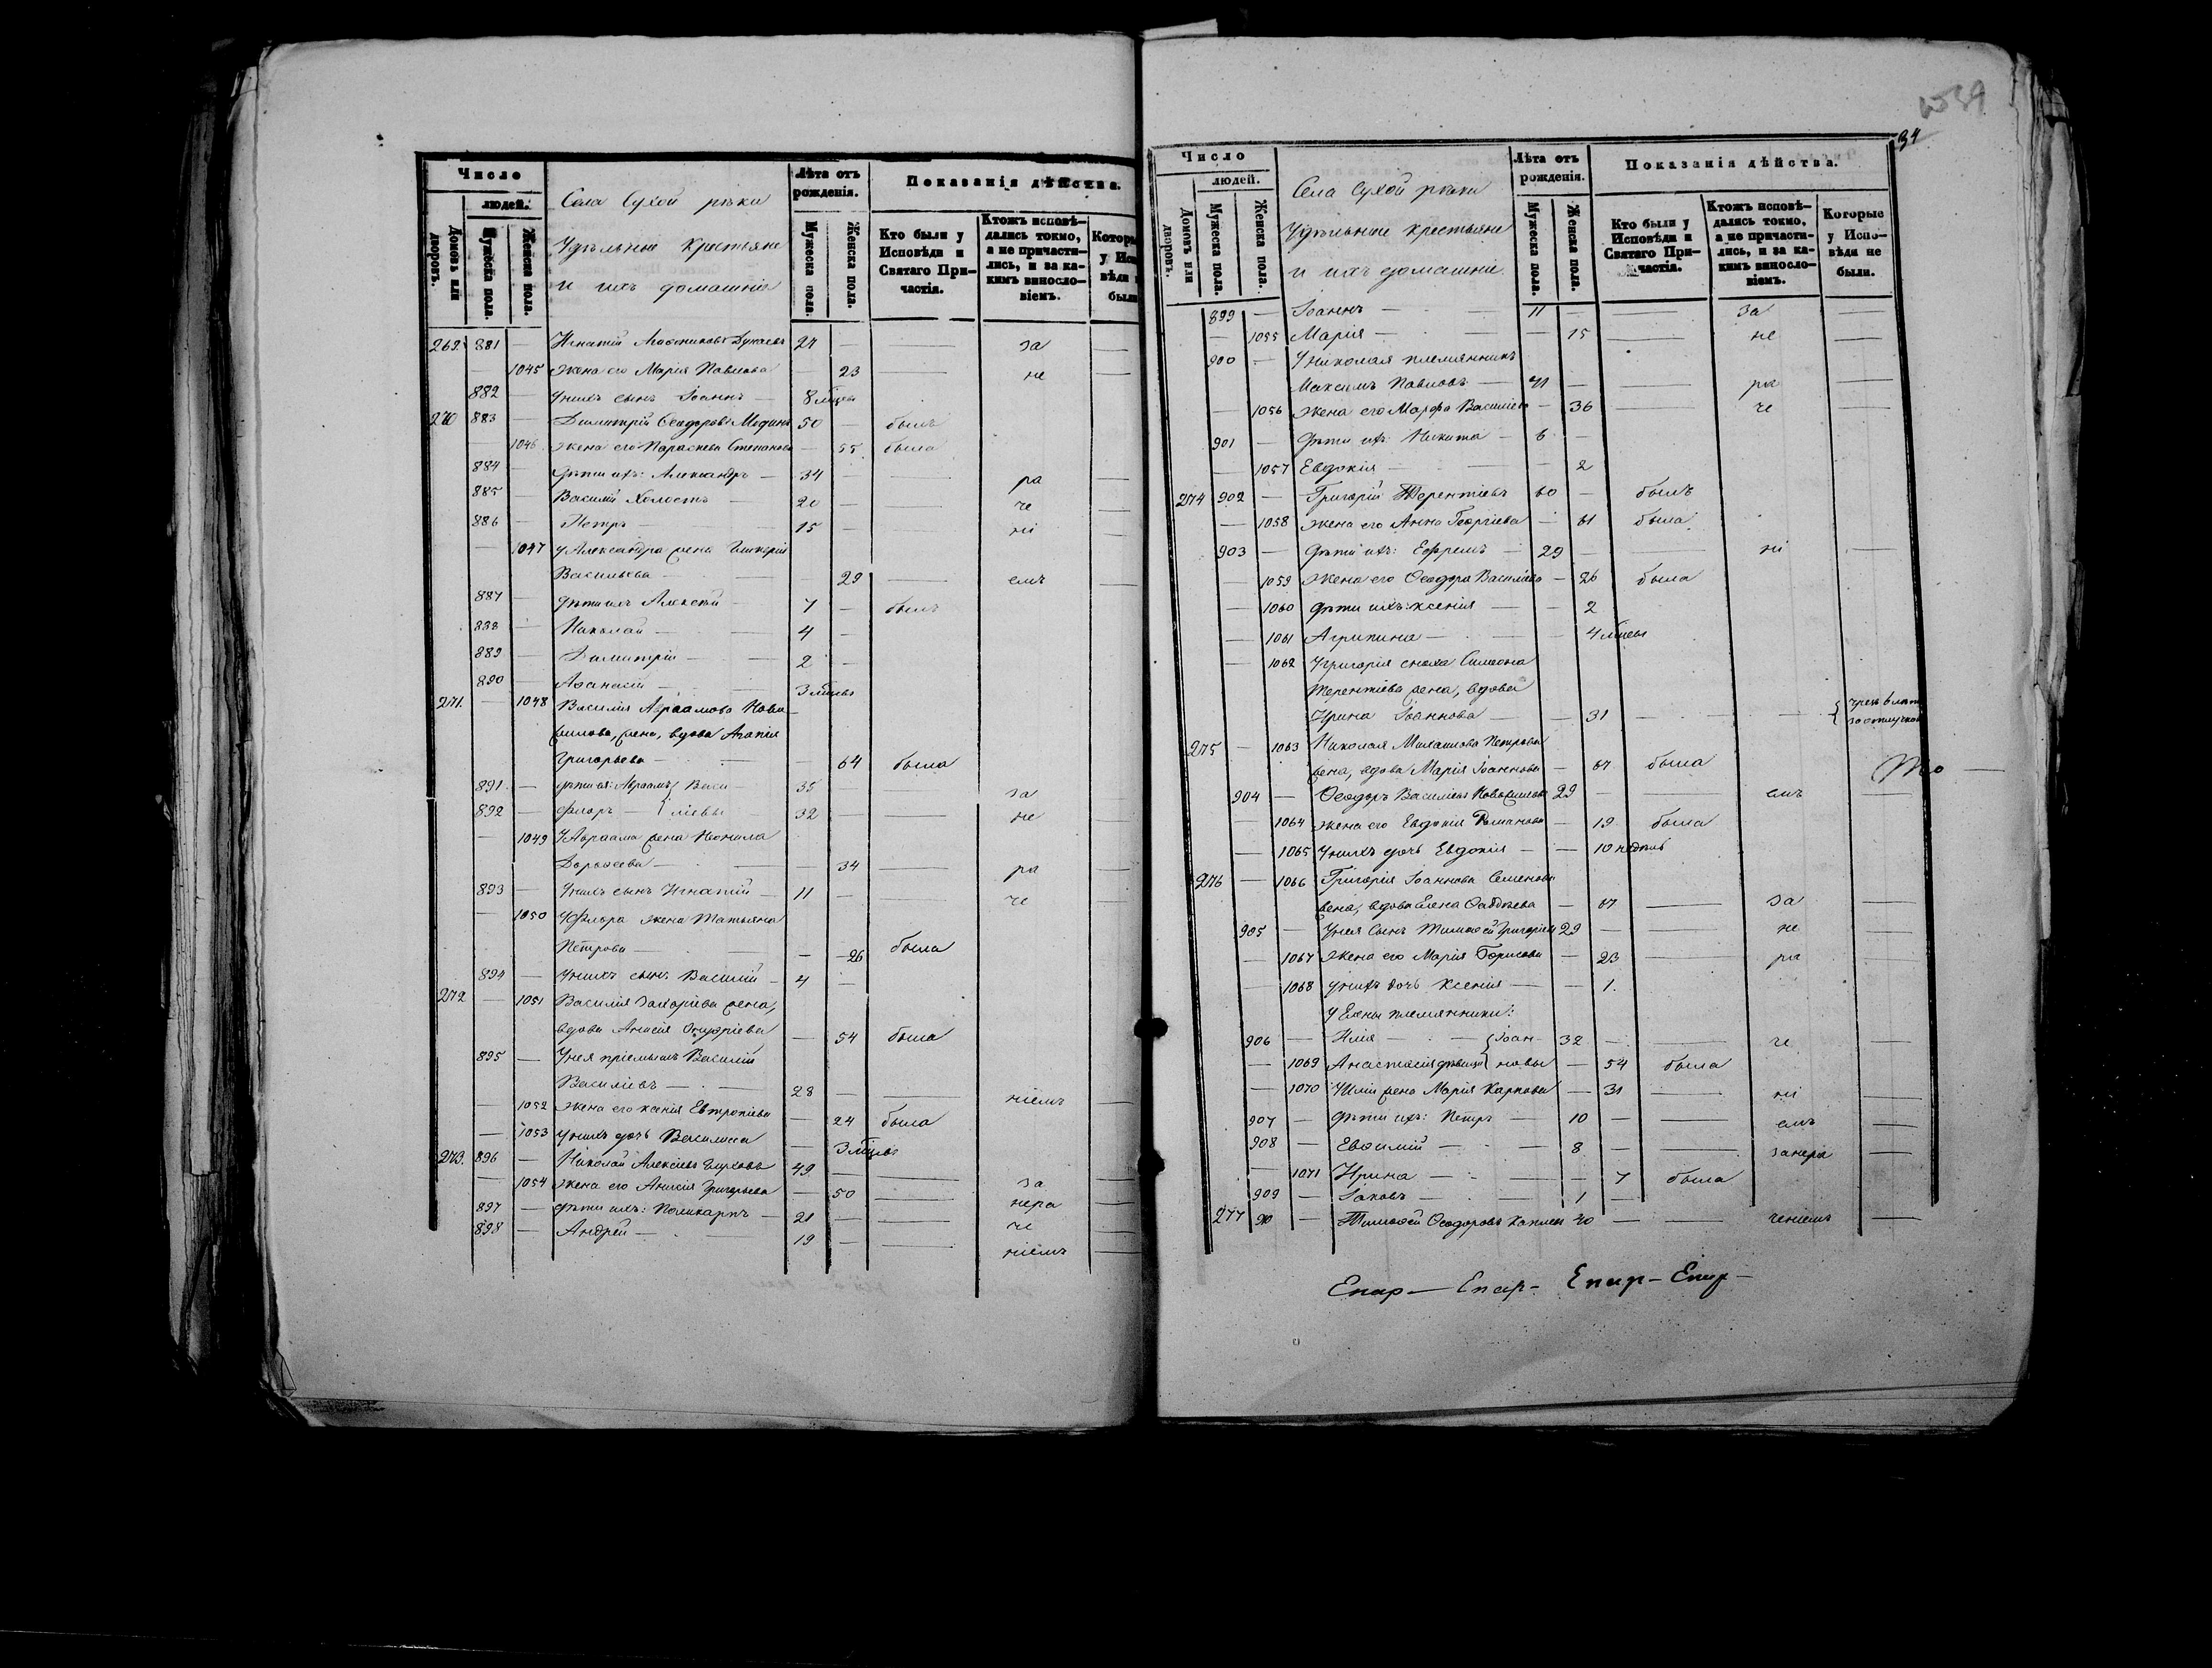 Число
людей.
Домовъ или дворовъ.
Мужеска пола.
Женска пола.
Села Сухой рѣки
Удѣльные Крестьяне
и ихъ домашніе
Лѣта отъ рожденія.
Мужеска пола.
Женска пола.
Показанія дѣйства.
Кто были у Исповѣди и Святаго При-частія.
Ктожъ исповѣ-дались токмо, а не причасти-лись, и за ка-кимъ винносло-віемъ.
269. 881 — Игнатій Дунаевъ 27 — — за —
— 1045 жена его Марія Павлова — 23 — не —
882 — у нихъ сынъ Іоаннъ — 8 мѣцевъ
270 883 — Димитрій Ѳеодоровъ 50 — былъ
— 1046 жена его Параскева Степанова — 55 была
884 — дѣти ихъ: Александръ — 34 — — ра —
885 — Василій Холостъ — 20 — — че —
886 — Петръ — 15 — — ні —
— 1047 у Александра жена Гликерія
Васильева — 29 — емъ —
887 — дѣти ихъ Алексѣй — 7 — былъ
888 — Николай — 4 —
889 — Димитрій — 2 —
890 — Аѳанасій — 3 мѣцевъ
271. — 1048 Василія Авраамова Нови
жена, вдова Агапія
Григорьева — — 64 была
891 — дѣти ея: Авраамъ } Васи- 35 — — за
892 — Флоръ — } ліевы 32 — — не —
— 1049 у Авраама жена Неонила
Дороѳеева — — 34 — ра —
893 — у нихъ сынъ Игнатій — 11 — — че —
— 1050 у Флора жена Татьяна
Петрова — — 26 была
894 — у нихъ сынъ Василій — 4 —
272 — 1051 Василія Захаріева жена,
вдова Анисія Онуфріева — 54 была
895 — у нея пріемышъ Василій
Василіевъ — 28 — — ніемъ —
— 1052 жена его Ксенія Евтропіева — 24 была
— 1053 у нихъ дочь Василисса — 3 мѣцевъ
273. 896 — Николай Алексіевъ Глуховъ 49 — — за —
— 1054 жена его Анисія Григорьева — 50 — нера —
897 — дѣти ихъ: Поликарпъ — 21 — — че —
898 — Андрей — 19 — — ніемъ —
34
Число
людей.
Домовъ или дворовъ.
Мужеска пола.
Женска пола.
Села Сухой рѣки
Удѣльные Крестьяне
и ихъ домашніе
Лѣта отъ рожденія.
Мужеска пола.
Женска пола.
Показанія дѣйства.
Кто были у Исповѣди и Святаго При-частія.
Ктожъ исповѣ-дались токмо, а не причасти-лись, и за ка-кимъ винносло-віемъ.
Которые у Испо-вѣди не были.
899 — Іоаннъ — 11 — — за —
— 1055 Марія — — 15 — не —
900 — у Николая племянникъ
Максимъ Павловъ — 41 — — ра —
— 1056 жена его Марфа Василіева — 36 — че —
901 — дѣти ихъ: Никита — 6 —
— 1057 Евдокія — — 2
274 902 — Григорій Терентіевъ 60 — былъ
— 1058 жена его Анна Георгіева — 61 была
903 — дѣти ихъ: Ефремъ — 29 — — ні —
— 1059 жена его Ѳеодора Василіева — 26 была
— 1060 дѣти ихъ: Ксенія — — 2
— 1061 Агрипина — — 4 мѣцевъ
— 1062 у Григорія сноха Симеона
Терентіева жена, вдова
Ирина Іоаннова — — 31 — —
275 — 1063 Николая Михаилова Петрова
жена, вдова Марія Іоаннова — 67 была
904 — Ѳеодоръ Василіевъ 29 — — емъ —
— 1064 жена его Евдокія Романова — 19 была
— 1065 у нихъ дочь Евдокія — — 10 недѣль
276 — 1066 Григорія Іоаннова Семенова
жена, вдова Елена — 67 — за —
905 — у нея сынъ Тимоѳей Григоріевъ 29 — — не —
— 1067 жена его Марія Борисова — 23 — ра —
— 1068 у нихъ дочь Ксенія — — 1.
у Елены племянники:
906 — Илія — { Іоан- 32 — — че —
— 1069 Анастасія дѣвица { новы — 54 была
— 1070 у Иліи жена Марія Карпова — 31 — ні —
907 — дѣти ихъ: Петръ — 10 — — емъ —
908 — Евѳимій — 8 — — занера —
— 1071 Ирина — — 7 была
909 — Іаковъ — 1 —
277 910 — Тимоѳей Ѳеодоровъ 40 — — ченіемъ —